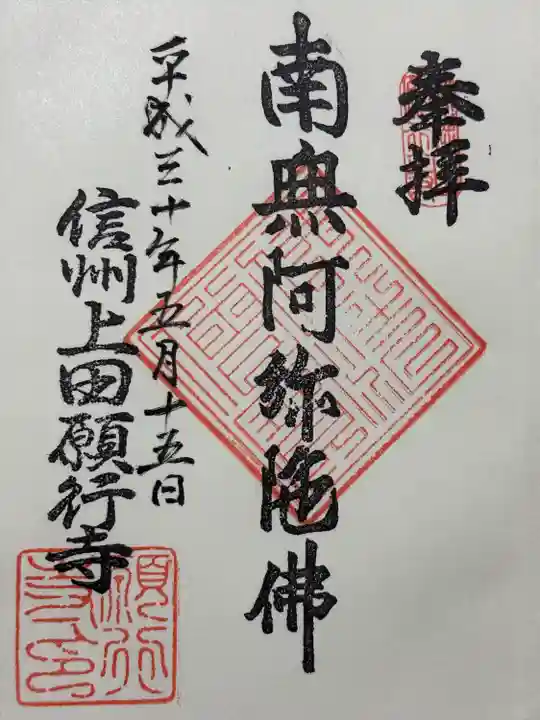 奉拝
南無阿弥陀佛
平成三十年五月十五日
信州上田願行寺
願行
寺印